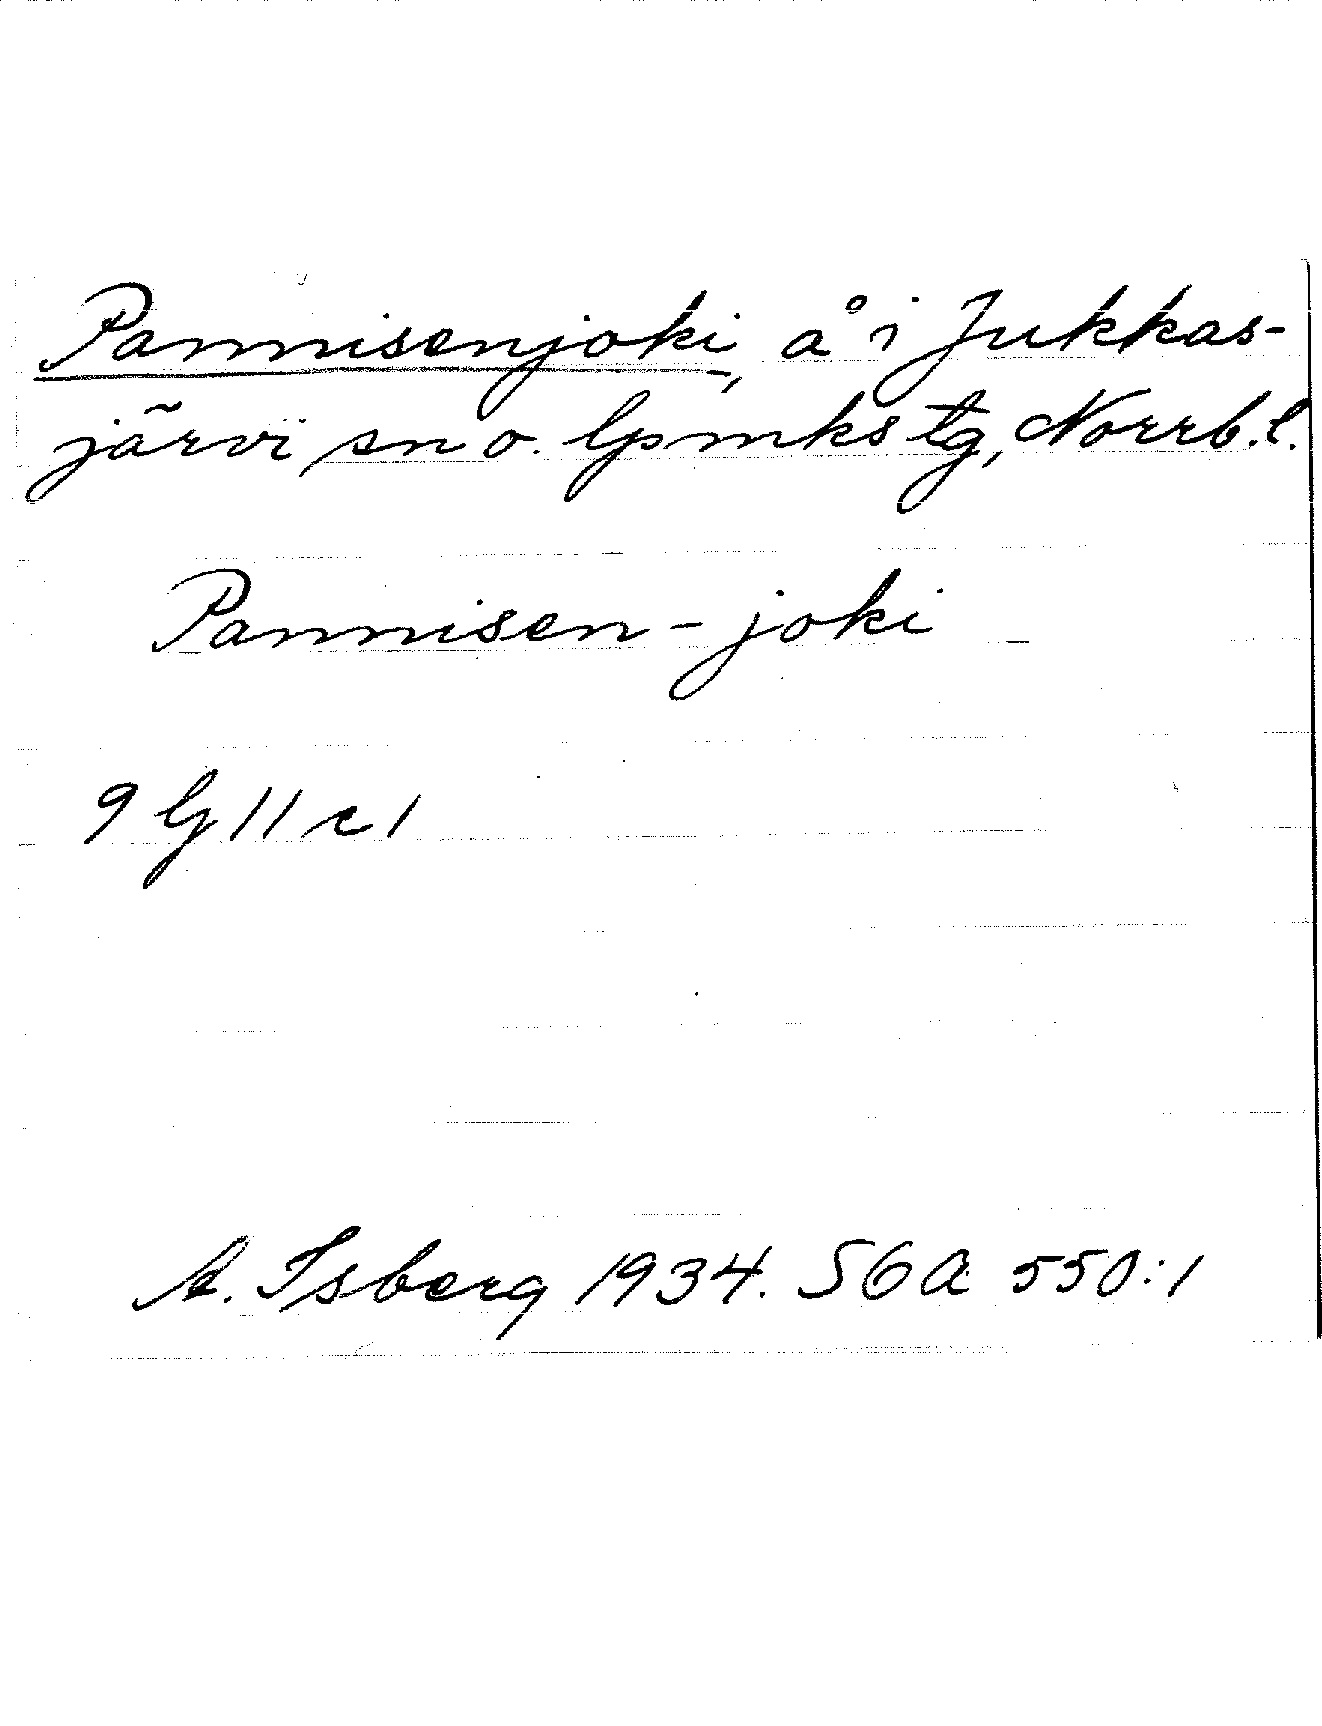 Pannisenjoki, å i Jukkas-
järvi sn o. lpmks tg, Norrb.l.
Pannisen-joki
9 G 11 c 1
A. Isberg 1934. SOA 550:1